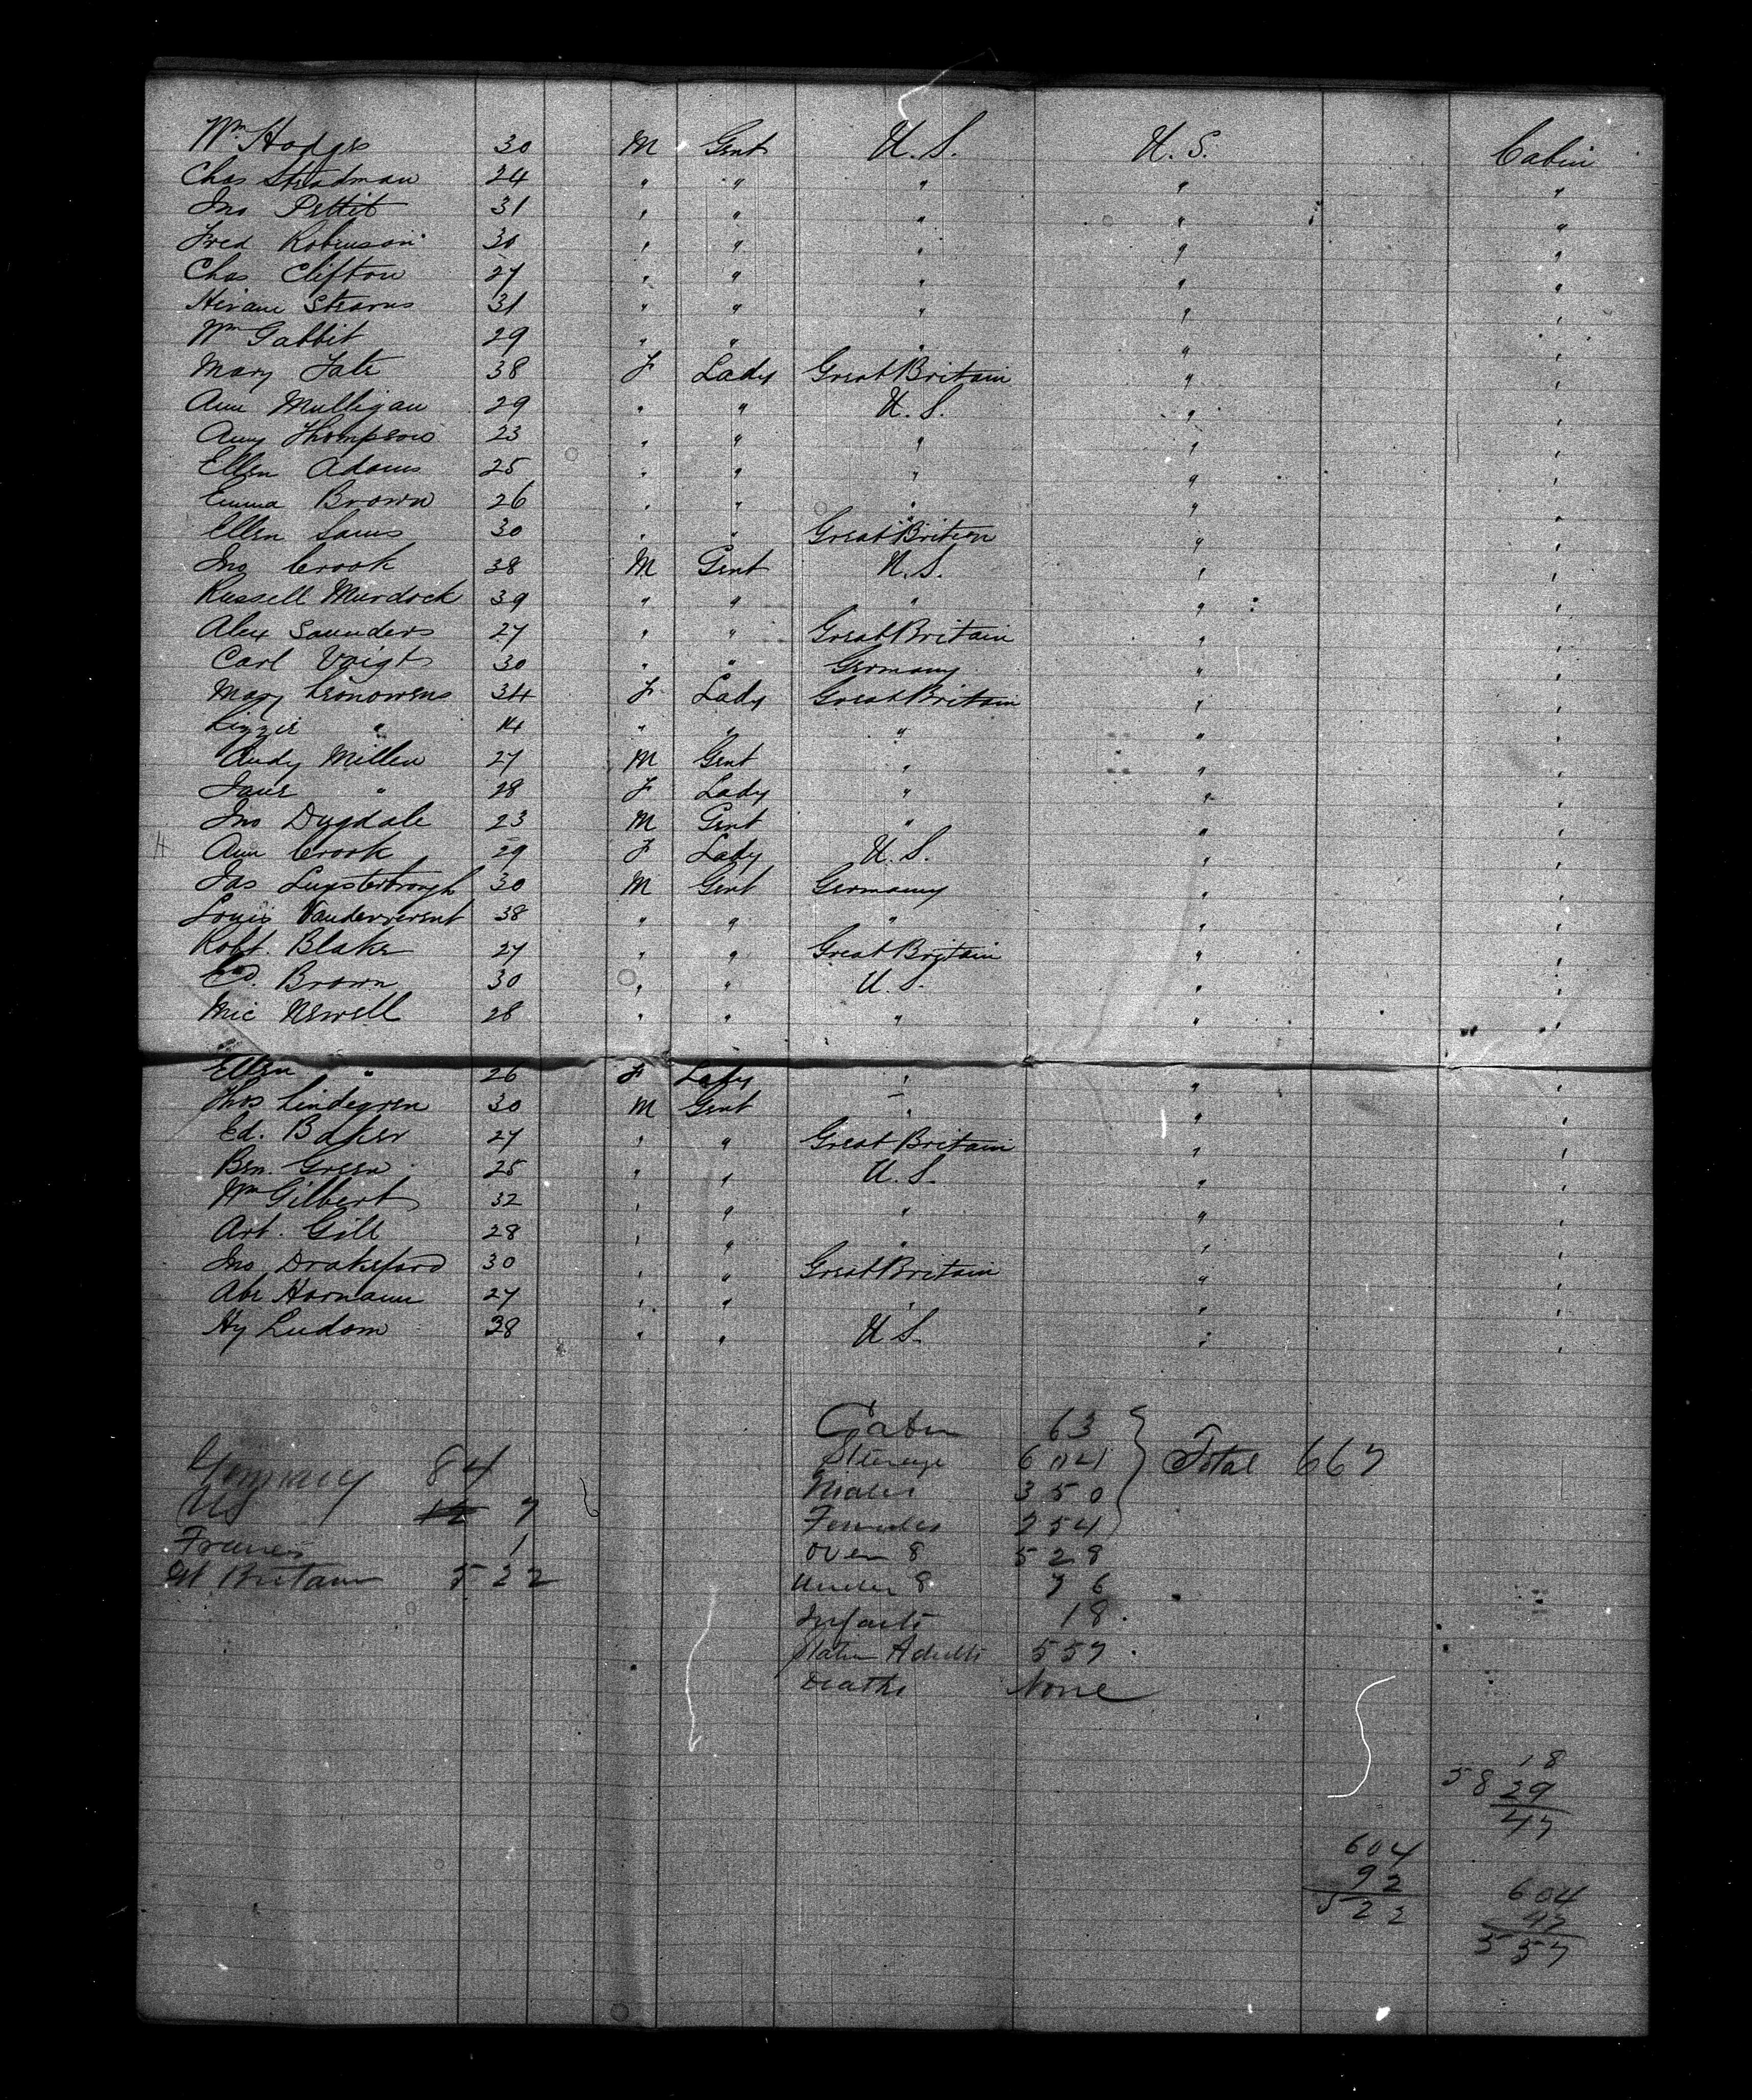 Wm Hodges 30 M Gent U. S. U. S. Cabin
Chas Steadman 24 " " " " "
Jno Pettit 31 " " " " "
Fred Robinson 30 " " " " "
Chas Clifton 27 " " " " "
Hiram Stearns 31 " " " " "
Wm Gabbit 29 " " " " "
Mary Tate 38 F Lady Great Britain " "
Ann Mulligan 29 " " U. S. " "
Amy Thompson 23 " " " " "
Ellen Adams 25 " " " " "
Emma Brown 26 " " " " "
Ellen Sams 30 " " Great Britain " "
Jno Crook 38 M Gent U. S. " "
Russell Murdock 39 " " " " "
Alex Saunders 27 " " Great Britain " "
Carl Voigt 30 " " Germany " "
Mary Leonowens 34 F Lady Great Britain " "
Lizzie " 14 " " " " "
Andy Millen 27 M Gent " " "
Jane " 28 F Lady " " "
Jno Dugdale 23 M Gent " " "
Ann Crook 29 F Lady U. S. " "
Jas 30 M Gent Germany " "
Louis 38 " " " " "
Robt. Blake 27 " " Great Britain " "
Ed. Brown 30 " " U. S. " "
Mic Newell 28 " " " " "
Ellen " 26 F Lady " " "
Thos Lindegren 30 M Gent " " "
Ed. Baker 27 " " Great Britain " "
Ben. Green 25 " " U. S. " "
Wm Gilbert 32 " " " " "
Art. Gill 28 " " " " "
Jno Drakeford 30 " " Great Britain " "
Abe Hornann 27 " " " " "
Hy Ludom 38 " " U S. " "
Cabin 63
Steerage 604 Total 667
Males 350
Females 254
Over 8 528
Under 8 76
Infants 18
Adults 557
Deaths None
Germany 84
US 7
France 1
Gt Britain 522
18
58 29
47
604
92
522
604
47
557